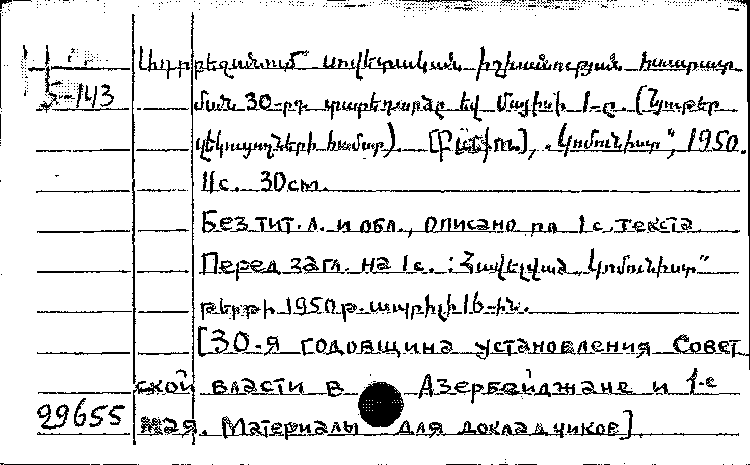 Ադրբեջանում սովետական իշխանության հաստատ
5-143 ման 30-րդ տարեդարձը եվ Մայիսի 1-ը. (Նյութեր
զեկուցողների համար). [Բաքու], „Կոմունիստ", 1950.
11с. 30см.
Без тит. л. и обл., описано по 1 с. текста
Перед загл. на 1с.: Հավելված „Կոմունիստ"
թերթի 1950թ. ապրիլի 16-ին.
[30-я годовщина установления Совет
ской власти в Азербайджане и 1-е
29655 мая. Материалы для докладчиков].